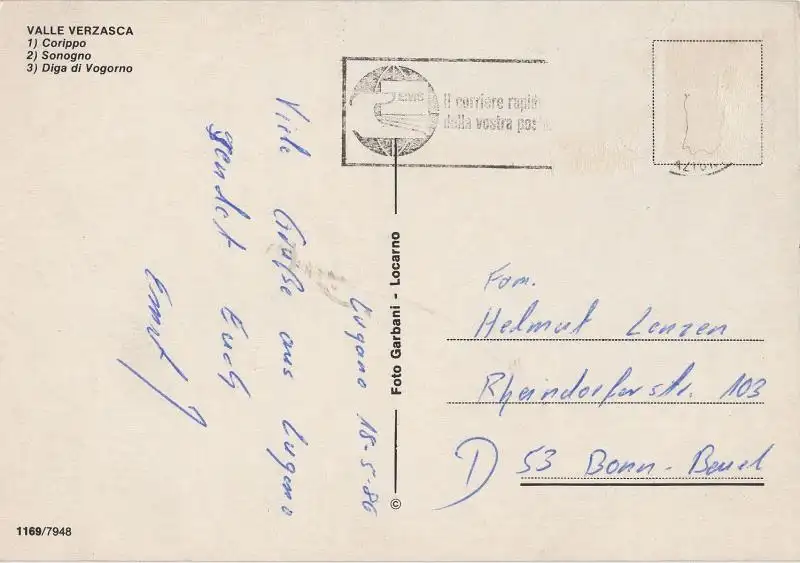 VALLE VERZASCA
1) Corippo
2) Sonogno
3) Diga di Vogorno
EMS
Il corriere rapid
della vostra pos
Lugano 18-5-86
Viele Grüße aus Lugano
sendet Euch
Ernst
Foto Garbani - Locarno
©
Fam.
Helmut Lenzen
Rheindorferstr. 103
D 53 Bonn-Beuel
1169/7948